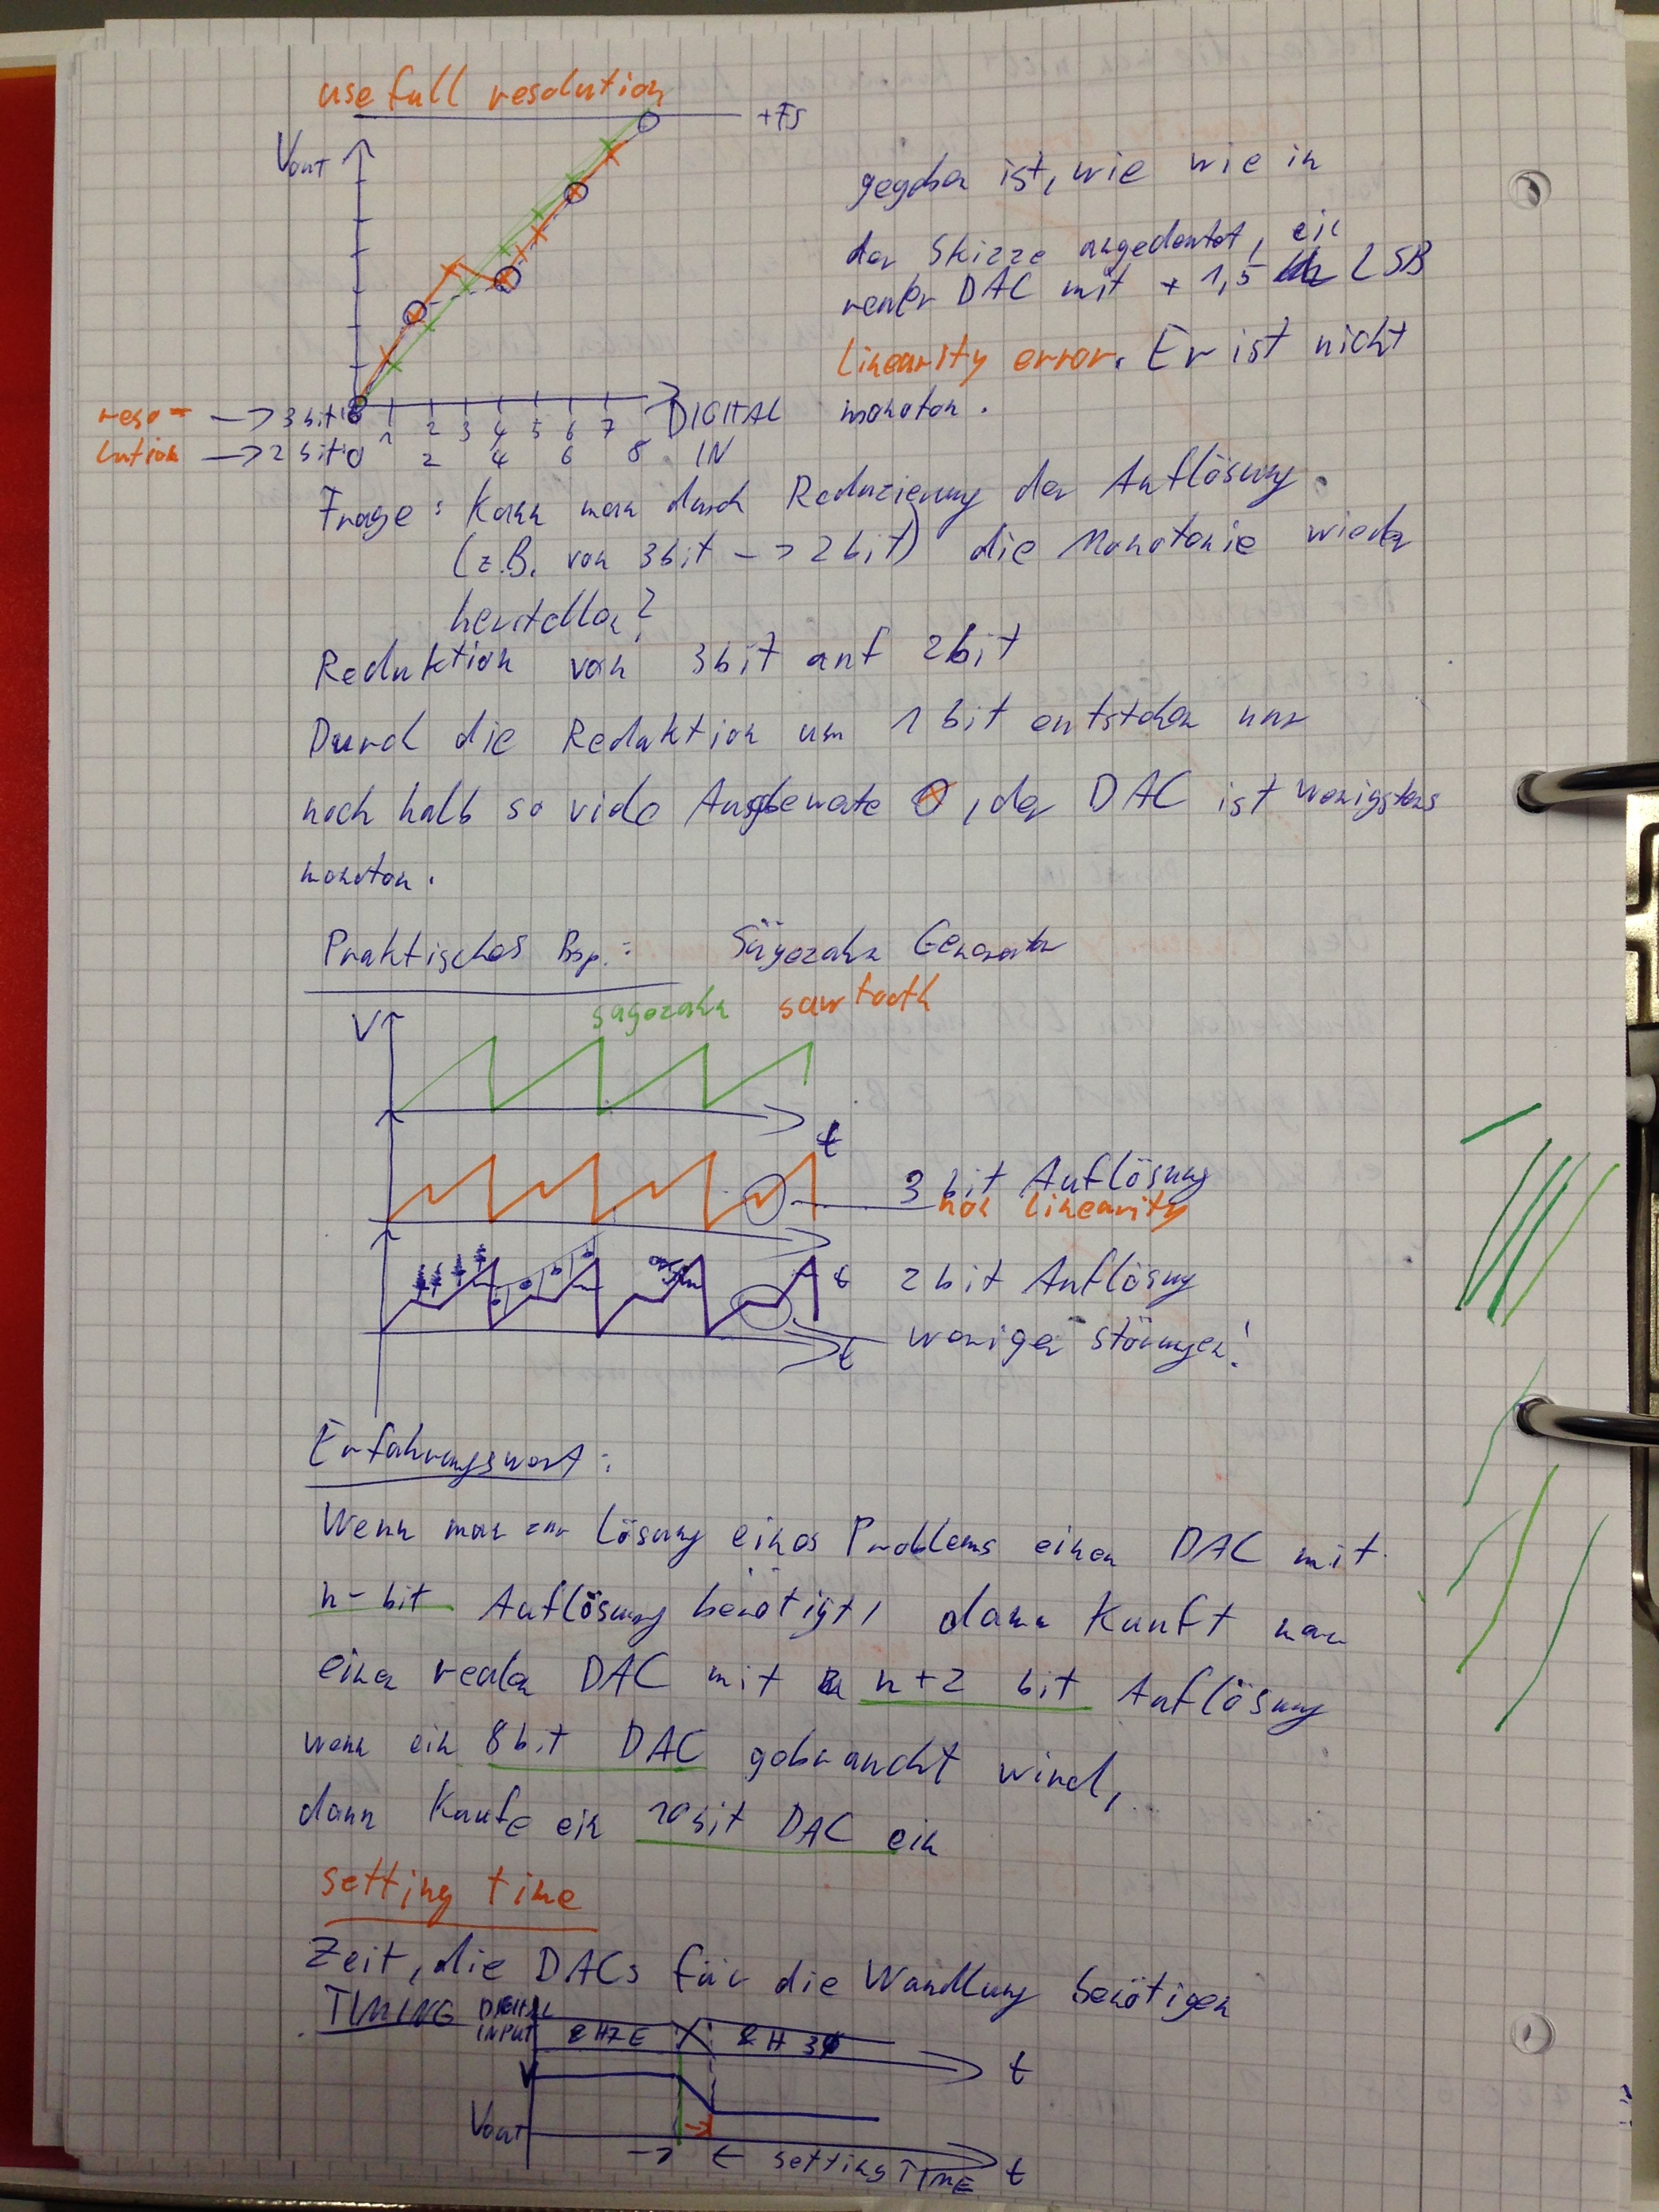 usefull resolution
+FS
Vout
gegeben ist, wie wie in
der Skizze angedeutet, ein
realer DAC mit + 1,5 LSB
linearity error. Er ist nicht
monoton.
reso- -> 3bit: 0 1 2 3 4 5 6 7 DIGITAL
lution -> 2bit: 0 2 4 6 8 IN
Frage: Kann man durch Reduzierung der Auflösung
(z.B. von 3bit -> 2bit) die Monotonie wieder
herstellen?
Reduktion von 3bit auf 2bit
Durch die Reduktion um 1 bit entstehen nur
noch halb so viele Ausgabewerte O, der DAC ist wenigstens
monoton.
Praktisches Bsp.: Sägezahn Generator
sägezahn sawtooth
V
t
3 bit Auflösung
non linearity
t
2 bit Auflösung
weniger störungen!
t
Erfahrungswert:
Wenn man zur Lösung eines Problems einen DAC mit
n-bit Auflösung benötigt, dann Kauft man
einen realen DAC mit n+2 bit Auflösung
wenn ein 8bit DAC gebraucht wird,
dann Kaufe ein 10bit DAC ein
setting time
Zeit, die DACs für die Wandlung benötigen
TIMING DIGITAL
INPUT &H7E &H30
t
V
Vout
-> <- setting TIME t